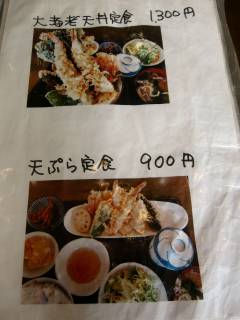 大海老天丼定食 1,300円
天ぷら定食 900円